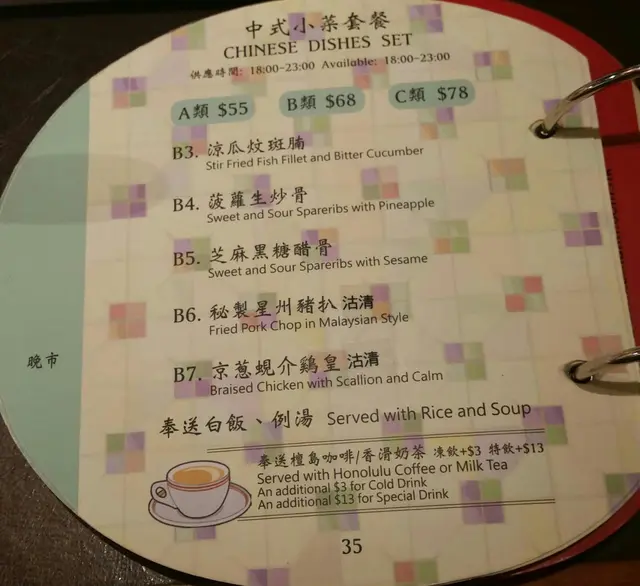 中式小菜套餐
CHINESE DISHES SET
供應時間: 18:00-23:00 Available: 18:00-23:00
A類 $55 B類 $68 C類 $78
B3. 涼瓜炆斑腩
Stir Fried Fish Fillet and Bitter Cucumber
B4. 菠蘿生炒骨
Sweet and Sour Spareribs with Pineapple
B5. 芝麻黑糖醋骨
Sweet and Sour Spareribs with Sesame
B6. 秘製星州豬扒 沽清
Fried Pork Chop in Malaysian Style
B7. 京葱蜆介鷄皇 沽清
Braised Chicken with Scallion and Calm
晚市
奉送白飯、例湯 Served with Rice and Soup
奉送檀島咖啡/香滑奶茶 凍飲+$3 特飲+$13
Served with Honolulu Coffee or Milk Tea
An additional $3 for Cold Drink
An additional $13 for Special Drink
35